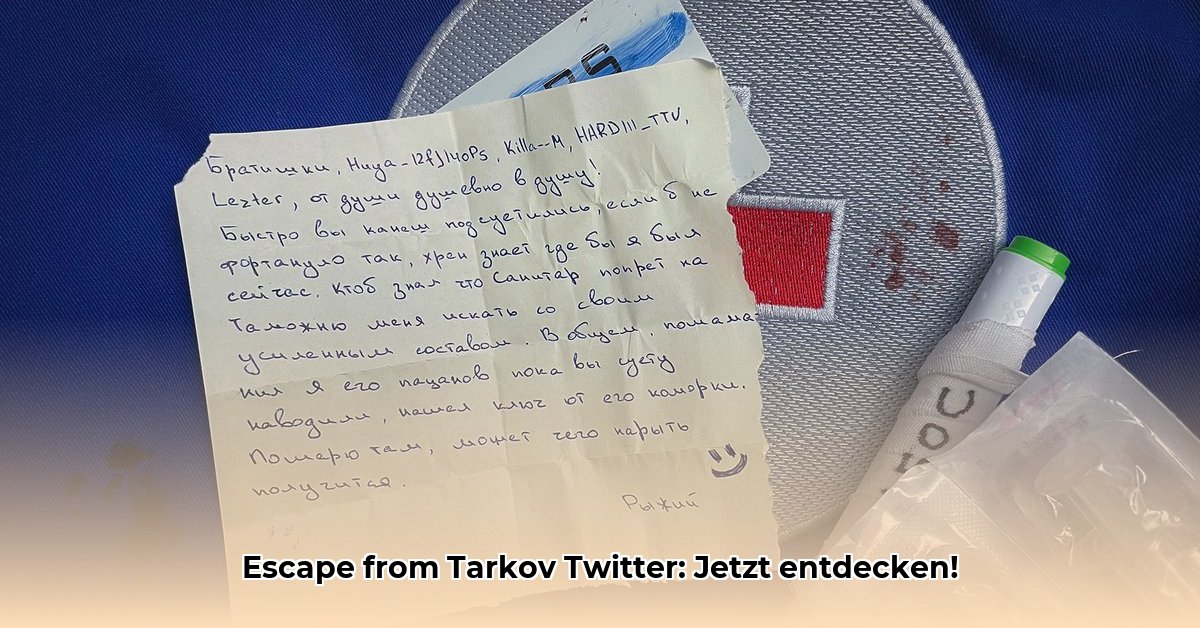 Братишки, Killa--M, HARDIII_TTV,
Lezter, от души душевно в душу!
Быстро вы канеш подсуетились, если б не
фортануло так, хрен знает где бы я был
сейчас. Ктоб знал что Санитар попрет на
Таможню меня искать со своим
усиленным составом. В общем, помама-
нил я его пацанов пока вы суету
наводили, нашел ключ от его каморки.
Пошерю там, может чего нарыть
получится.
Рыжий
Escape from Tarkov Twitter: Jetzt entdecken!